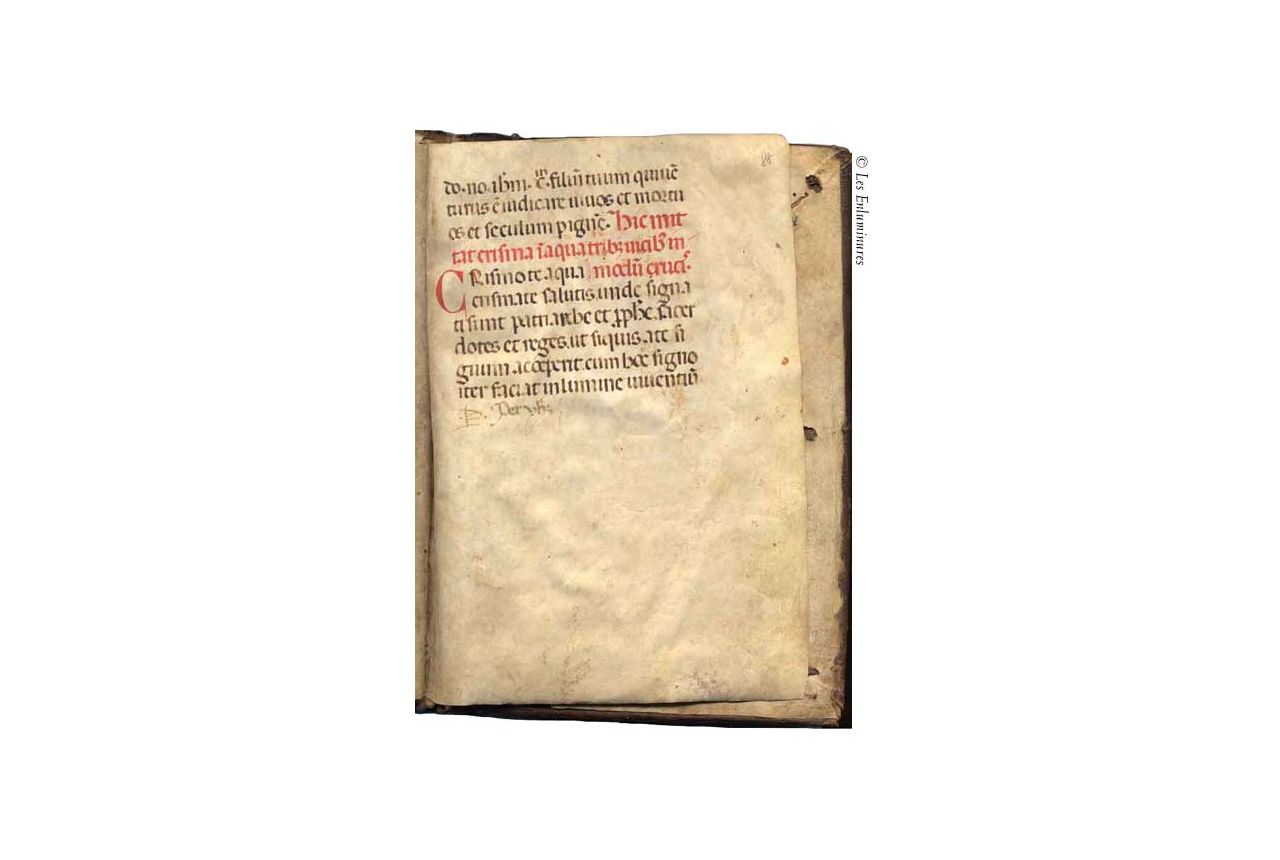 88
do. no. ihm. xp̅. filiū tuum qui uē
turus ē iudicare uiuos et mortu
os et seculum p ignē. Hic mit
tat crisma ī aqua tribꝫ uicibꝫ in
Crismo te aqua modū cruc̅.
crismate salutis. unde signa
ti sunt patriarche et ꝓph̅e. sacer
dotes et reges. ut si quis. a te si
gnum acceperit. cum hoc signo
iter faciat in lumine uiuentiū
Per
© Les Enluminures